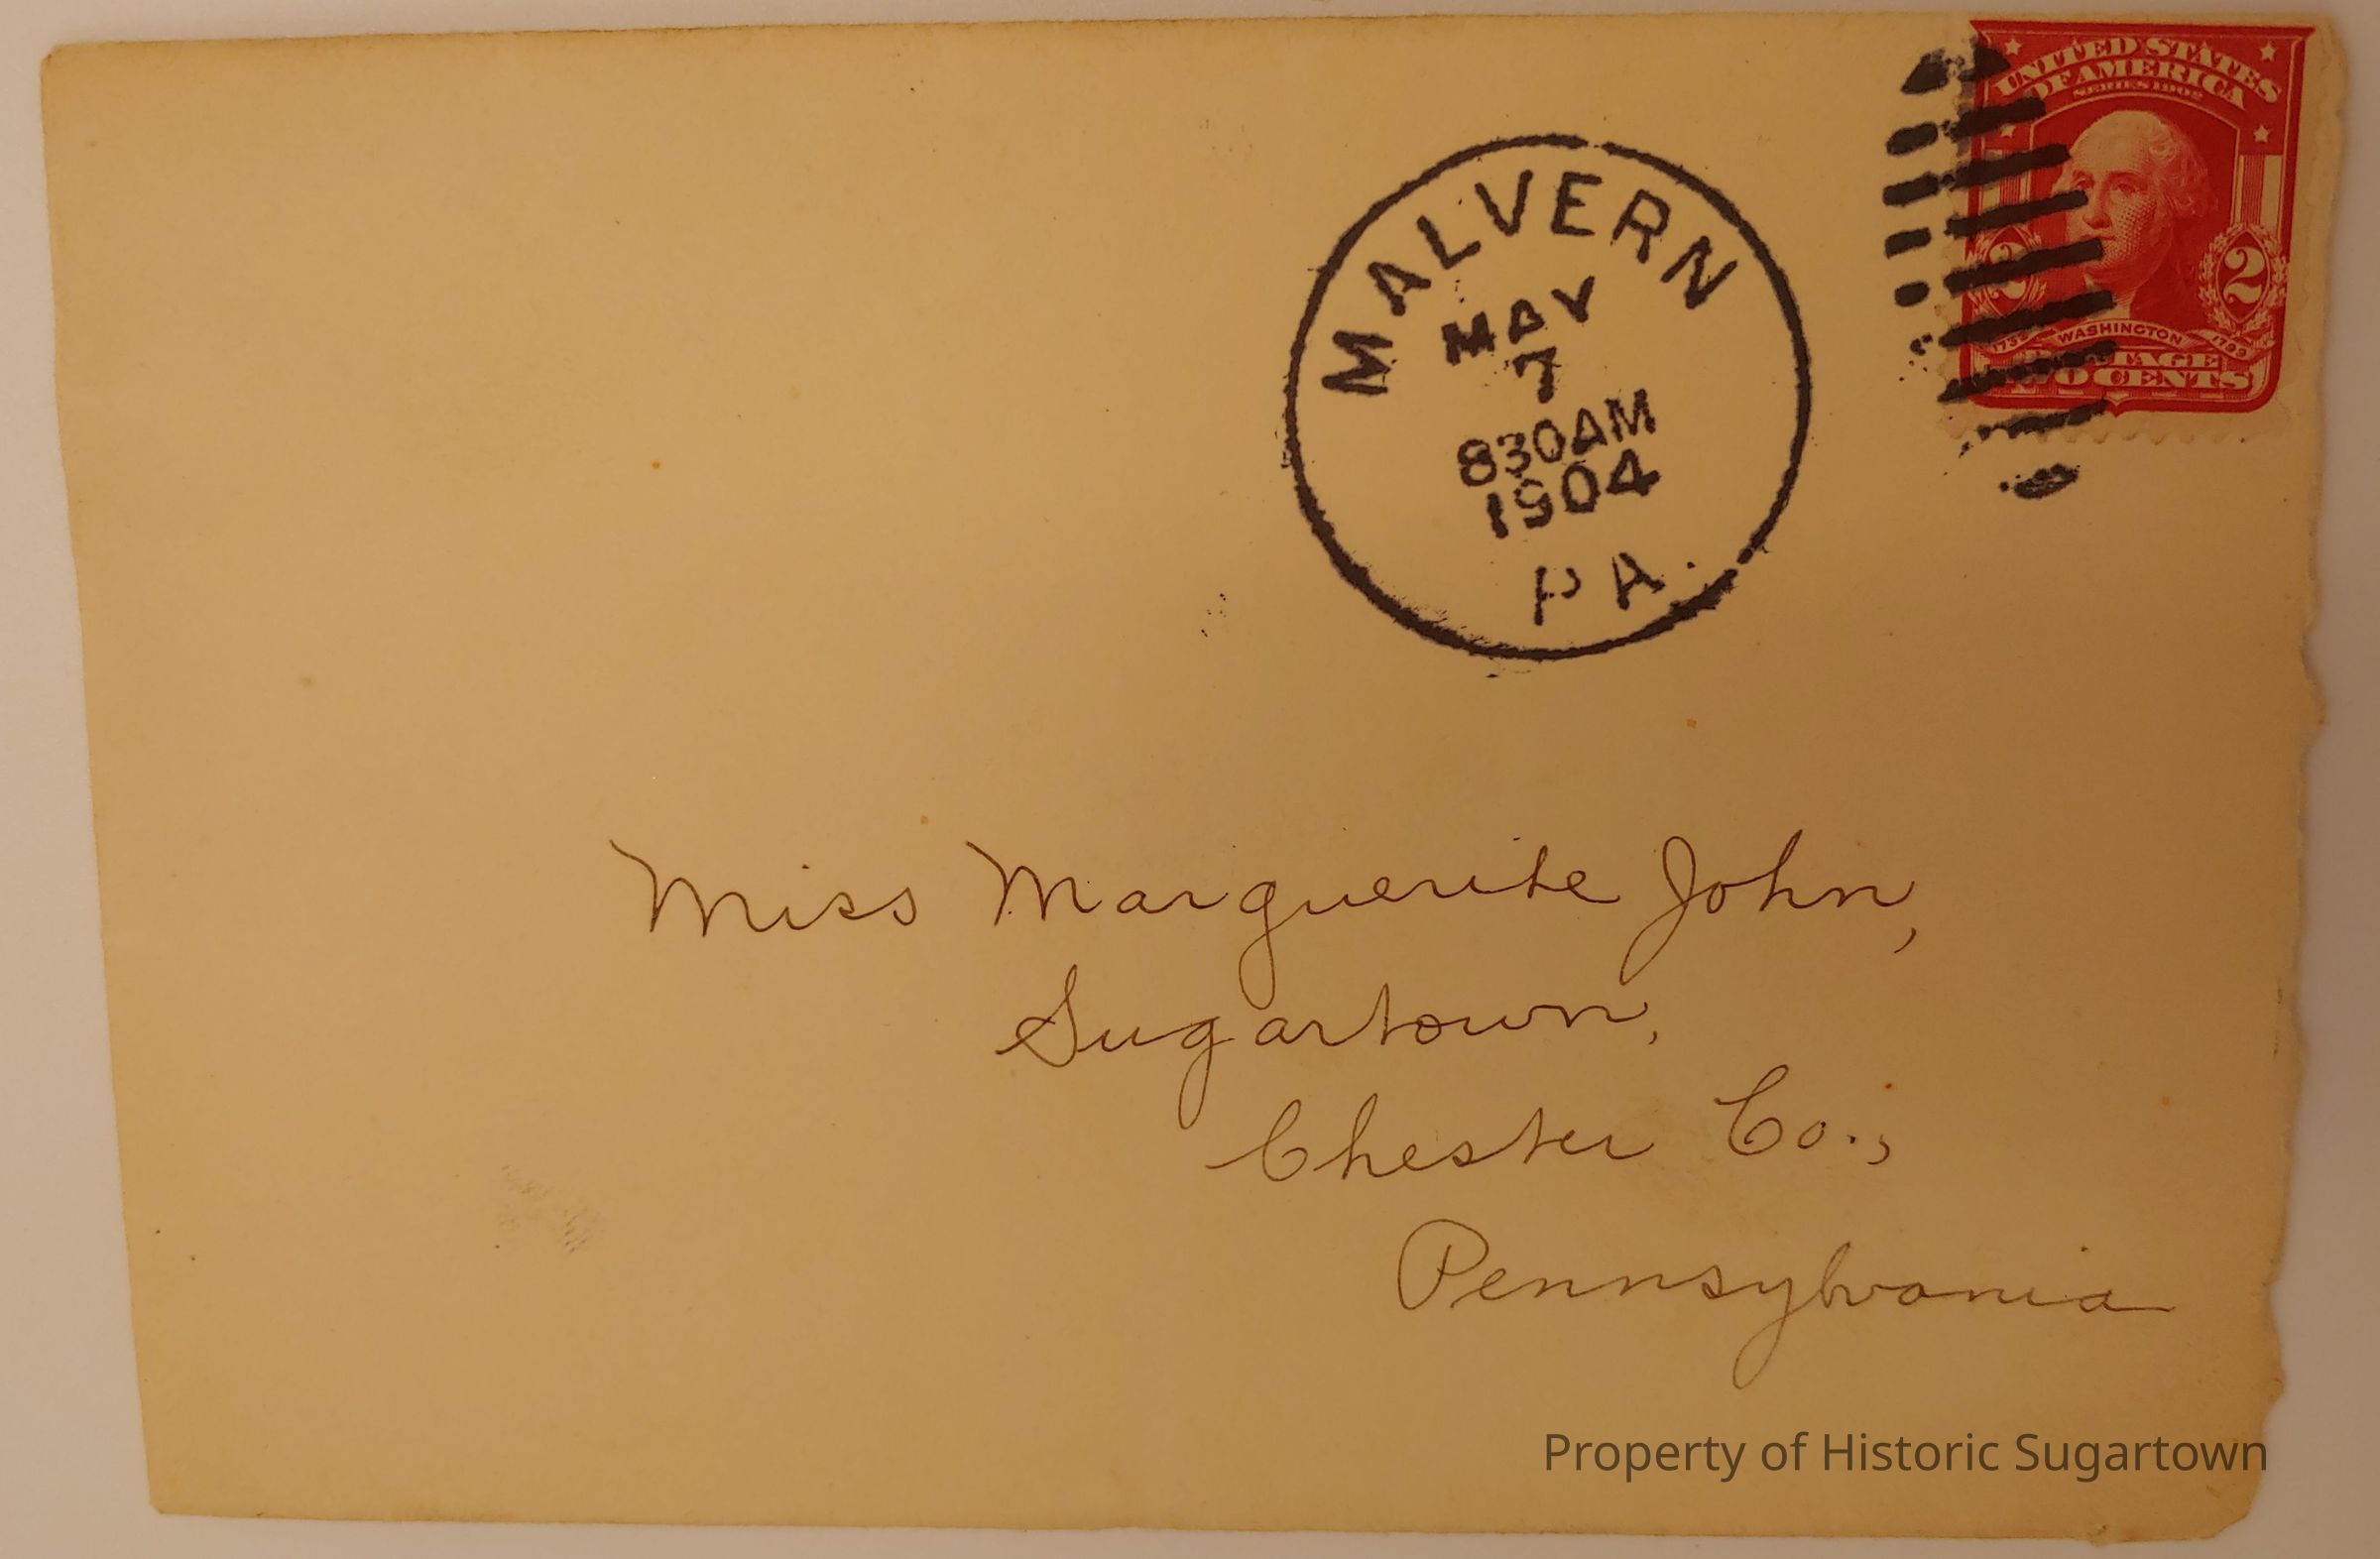 UNITED STATES
OF AMERICA
SERIES 1902
2 2
1732 WASHINGTON 1799
TWO CENTS
MALVERN
MAY
7
830AM
1904
PA.
Miss Marguerite John,
Sugartown,
Chester Co.,
Pennsylvania
Property of Historic Sugartown